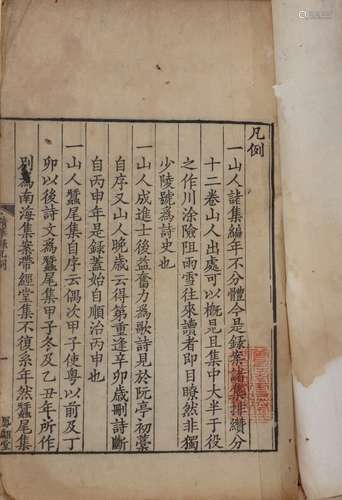 凡例
一山人諸集編年不分體今是錄案諸集排纘分
十二卷山人出處可以概見且集中大半于役
之作川涂險阻雨雪往來讀者即目瞭然非獨
少陵號爲詩史也
一山人成進士後益奮力爲歌詩見於阮亭初藁
自序又山人晚歲云得第重逢辛卯歲刪詩斷
自丙申年是錄蓋始自順治丙申也
一山人蠶尾集自序云偶次甲子使粵以前及丁
卯以後詩文爲蠶尾集甲子冬及乙丑年所作
別爲南海集案帶經堂集不復系年然蠶尾集